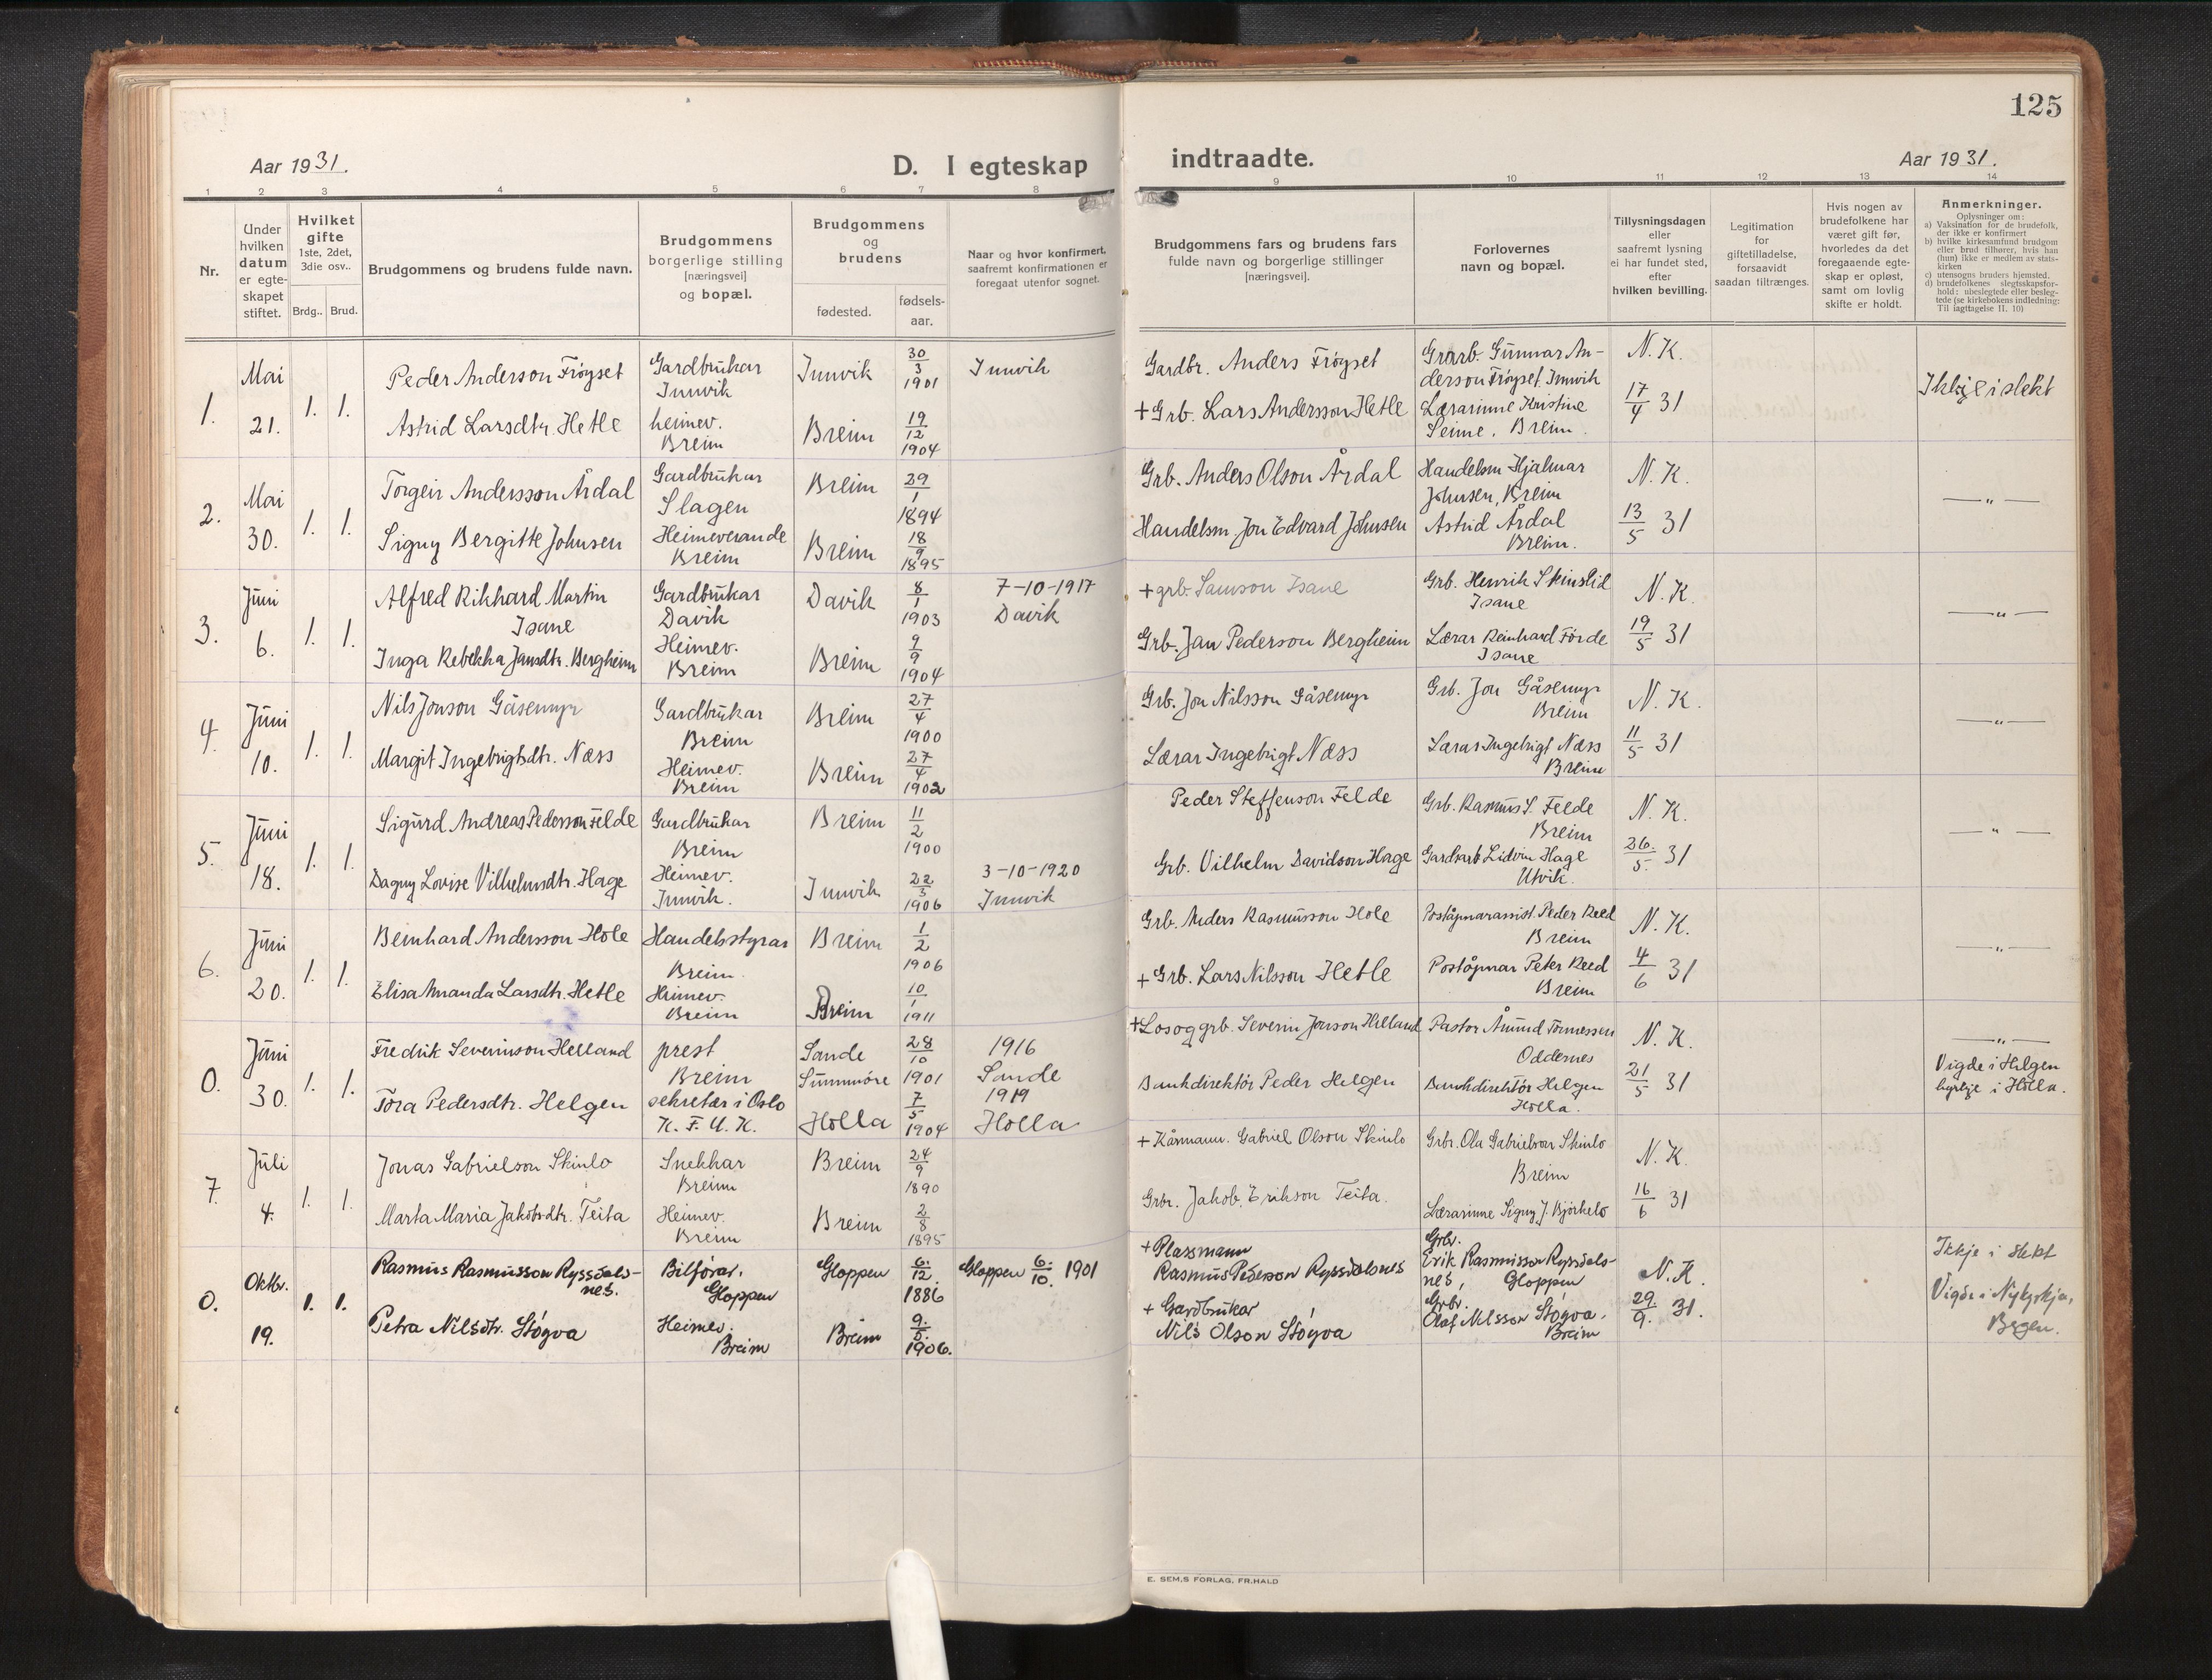 125
Aar 1931.
D. I egteskap indtraadte.
Aar 1931.
1 2 3 4 5 6 7 8 9 10 11 12 13 14
Nr.
Under
hvilken
datum
er egte-
skapet
stiftet.
Hvilket
gifte
1ste, 2det,
3die osv..
Brdg.. Brud.
Brudgommens og brudens fulde navn.
Brudgommens
borgerlige stilling
[næringsvei]
og bopæl.
Brudgommens
og
brudens
fødested.
fødsels-
aar.
Naar og hvor konfirmert.
saafremt konfirmationen er
foregaat utenfor sognet.
Brudgommens fars og brudens fars
fulde navn og borgerlige stillinger
[næringsvei].
Forlovernes
navn og bopæl.
Tillysningsdagen
eller
saafremt lysning
ei har fundet sted,
efter
hvilken bevilling.
Legitimation
for
giftetilladelse,
forsaavidt
saadan tiltrænges.
Hvis nogen av
brudefolkene har
været gift før,
hvorledes da det
foregaaende egte-
skap er opløst,
samt om lovlig
skifte er holdt.
Anmerkninger.
Oplysninger om:
a) Vaksination for de brudefolk,
der ikke er konfirmert
b) hvilke kirkesamfund brudgom
eller brud tilhører, hvis han
(hun) ikke er medlem av stats-
kirken
c) utensogns bruders hjemsted.
d) brudefolkenes slegtsskapsfor-
hold: ubeslegtede eller besleg-
tede (se kirkebokens indledning:
Til iagttagelse II. 10)
1.
Mai
21.
1. 1.
Peder Anderson Frøyset
Astrid Larsdtr. Hetle
Gardbrukar
Innvik
heimev.
Breim
Innvik
Breim
30/3 1901
19/12 1904
Innvik
Gardbr. Anders Frøyset
+ Grb. Lars Andersson Hetle
Gardb. Gunnar An-
derson Frøyset. Innvik
Lærarinne Kristine
Seime, Breim.
N. K.
17/4 31
Ikkje i slekt
2.
Mai
30.
1. 1.
Torgeir Andersson Årdal
Signy Bergitte Johnsen
Gardbrukar
Slagen
Heimeverande
Breim
Breim
Breim
29/1 1894
18/9 1895
Grb. Anders Olson Årdal
Handelsm. Jon Edvard Johnsen
Handelsm Hjalmar
Johnsen, Breim
Astrid Årdal
Breim.
N. K.
13/5 31
— " —
3.
Juni
6.
1. 1.
Alfred Rikhard Martin
Isane
Inga Rebekka Jansdtr. Bergheim
Gardbrukar
Davik
Heimev.
Breim
Davik
Breim
8/1 1903
9/9 1904
7-10-1917
Davik
+ grb. Samson Isane
Grb. Jan Pederson Bergheim
Grb. Henrik Skinslid
Isane
Lærar Reinhard Förde
Isane
N. K.
19/5 31
— " —
4.
Juni
10.
1. 1.
Nils Jonson Gåsemyr
Margit Ingebrigtsdtr. Næss
Gardbrukar
Breim
Heimev.
Breim
Breim
Breim
27/4 1900
27/4 1902
Grb. Jon Nilsson Gåsemyr
Lærar Ingebrigt Næss
Grb. Jon Gåsemyr
Breim
Lærar Ingebrigt Næss
Breim
N. K.
11/5 31
— " —
5.
Juni
18.
1. 1.
Sigurd Andreas Pedersson Felde
Dagny Lovise Vilhelmsdtr. Hage
Gardbrukar
Breim
Heimev.
Innvik.
Breim
Innvik
11/2 1900
22/3 1906
3-10-1920
Innvik
Peder Steffenson Felde
Grb. Vilhelm Davidson Hage
Grb. Rasmus S. Felde
Breim
Gardsarb. Lidvin Hage
Utvik.
N. K.
26./5. 31
— " —
6.
Juni
20.
1. 1.
Bernhard Andersson Hole
Elisa Amanda Larsdtr. Hetle
Handelsstyrar
Breim.
Heimev.
Breim
Breim
Breim
1/2 1906
10/1 1911
Grb. Anders Rasmusson Hole
+ Grb. Lars Nilsson Hetle
Poståpnarassist. Peder Reed
Breim
Poståpnar Peter Reed
Breim
N. K.
4/6 31
— " —
0.
Juni
30.
1. 1.
Fredrik Severinson Helland
Tora Pedersdtr. Helgen
prest
Breim
sekretær i Oslo
K. F. U. K.
Sande
Sunnmöre
Holla
28/10 1901
7/5 1904
1916
Sande
1919
Holla
+ Los og grb. Severin Jonson Helland
Bankdirektör Peder Helgen
Pastor Åmund Tönnessen
Oddernes
Bankdirektör Helgen
Holla.
N. K.
21/5 31
— " —
Vigde i Helgen
kyrkje i Holla.
7.
Juli
4.
1. 1.
Jonas Gabrielson Skinlo
Marta Maria Jakobsdtr. Teita
Snekkar
Breim
Heimev.
Breim
Breim
Breim
24/9 1890
2/8 1895
+ Kårmann. Gabriel Olson Skinlo
Grbr. Jakob Erikson Teita.
Grbr. Ola Gabrielson Skinlo
Breim
Lærarinne Signy J. Bjørkelo
N. K.
16/6 31
0.
Oktbr.
19.
1. 1.
Rasmus Rasmusson Ryssdals-
nes.
Petra Nilsdtr. Støyva
Bilförar,
Gloppen
Heimev.
Breim
Gloppen
Breim
6./12. 1886
9./5. 1906.
Gloppen 6./10. 1901
+ Plassmann
Rasmus Pederson Ryssdalsnes
+ Gardbrukar
Nils Olson Støyva
Grbr.
Erik Rasmusson Ryssdals-
nes, Gloppen
Grbr.
Olaf Nilsson Støyva,
Breim
N. K.
29./9. 31.
Ikkje i slekt
Vigde i Nykyrkja,
Bergen.
E. SEM,S FORLAG, FR.HALD